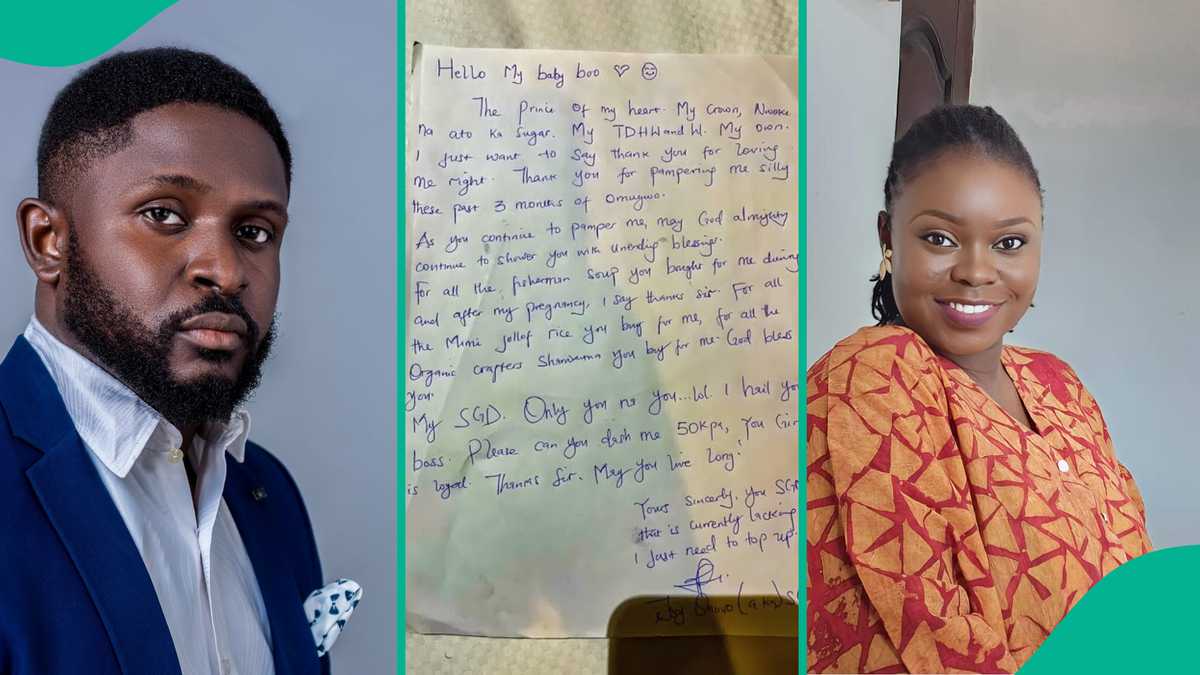 Hello My baby boo
The Prince of my heart. My Crown, Nwoke
na ato ka sugar. My TDHW and W. My Own.
I just want to say thank you for loving
me right. Thank you for pampering me silly
these past 3 months of Omugwo.
As you continue to pamper me, may God almighty
continue to shower you with unending blessings.
For all the fisherman soup you bought for me during
and after my pregnancy, I say thanks sir. For all
the Mimi Jollof rice you buy for me, for all the
Organic crafters Shawarma you buy for me. God bless
you.
My SGD. Only you na you...lol. I hail you
boss. Please can you dash me 50k pa, You Girl
is loyal. Thanks Sir. May you live long!
Yours Sincerely, you SGD
that is currently lacking
I just need to top up.
(aka)